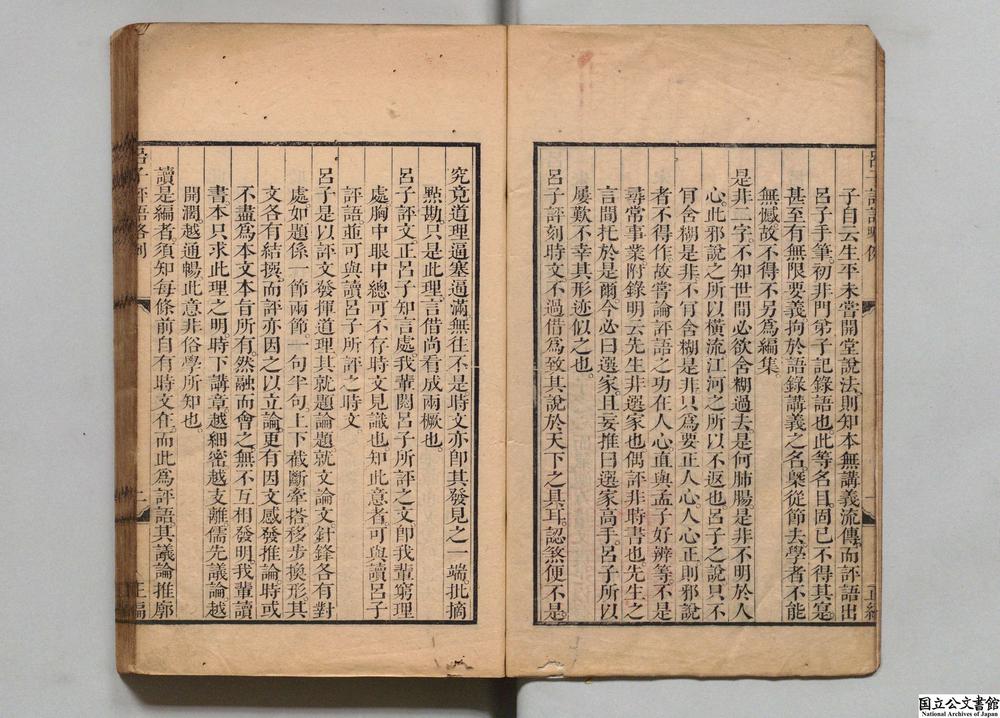 子自云生平未嘗開堂說法則知本無講義流傳而評語出
呂子手筆初非門弟子記錄語也此等名目固已不得其寔
甚至有無限要義拘於語錄講義之名槩從節去學者不能
無憾故不得不另爲編集
是非二字不知世間必欲含糊過去是何肺腸是非不明於人
心此邪說之所以橫流江河之所以不返也呂子之說只不
肯含糊是非不肯含糊是非只爲要正人心人心正則邪說
者不得作故嘗論評語之功在人心直與孟子好辨等不是
尋常事業附錄明云先生非選家也偶評非時書也先生之
言間托於是爾今必曰選家且妄推曰選家高手呂子所以
屢歎不幸其形迹似之也
呂子評刻時文不過借爲致其說於天下之具耳認煞便不是
究竟道理逼塞逼滿無往不是時文亦卽其發見之一端批摘
㸃勘只是此理言借尚看成兩橛也
呂子評文正呂子知言處我輩閱呂子所評之文卽我輩窮理
處胸中眼中總可不存時文見識也知此意者可與讀呂子
評語並可與讀呂子所評之時文
呂子是以評文發揮道理其就題論題就文論文針鋒各有對
處如題係一節兩節一句半句上下截斷牽搭移步換形其
文各有結撰而評亦因之以立論更有因文感發推論時或
不盡爲本文本旨所有然融而會之無不互相發明我輩讀
書本只求此理之明時下講章越細密越支離儒先議論越
開濶越通暢此意非俗學所知也
讀是編者須知每條前自有時文在而此爲評語其議論推廓
呂子評語略例
二
正編
国立公文書館
National Archives of Japan